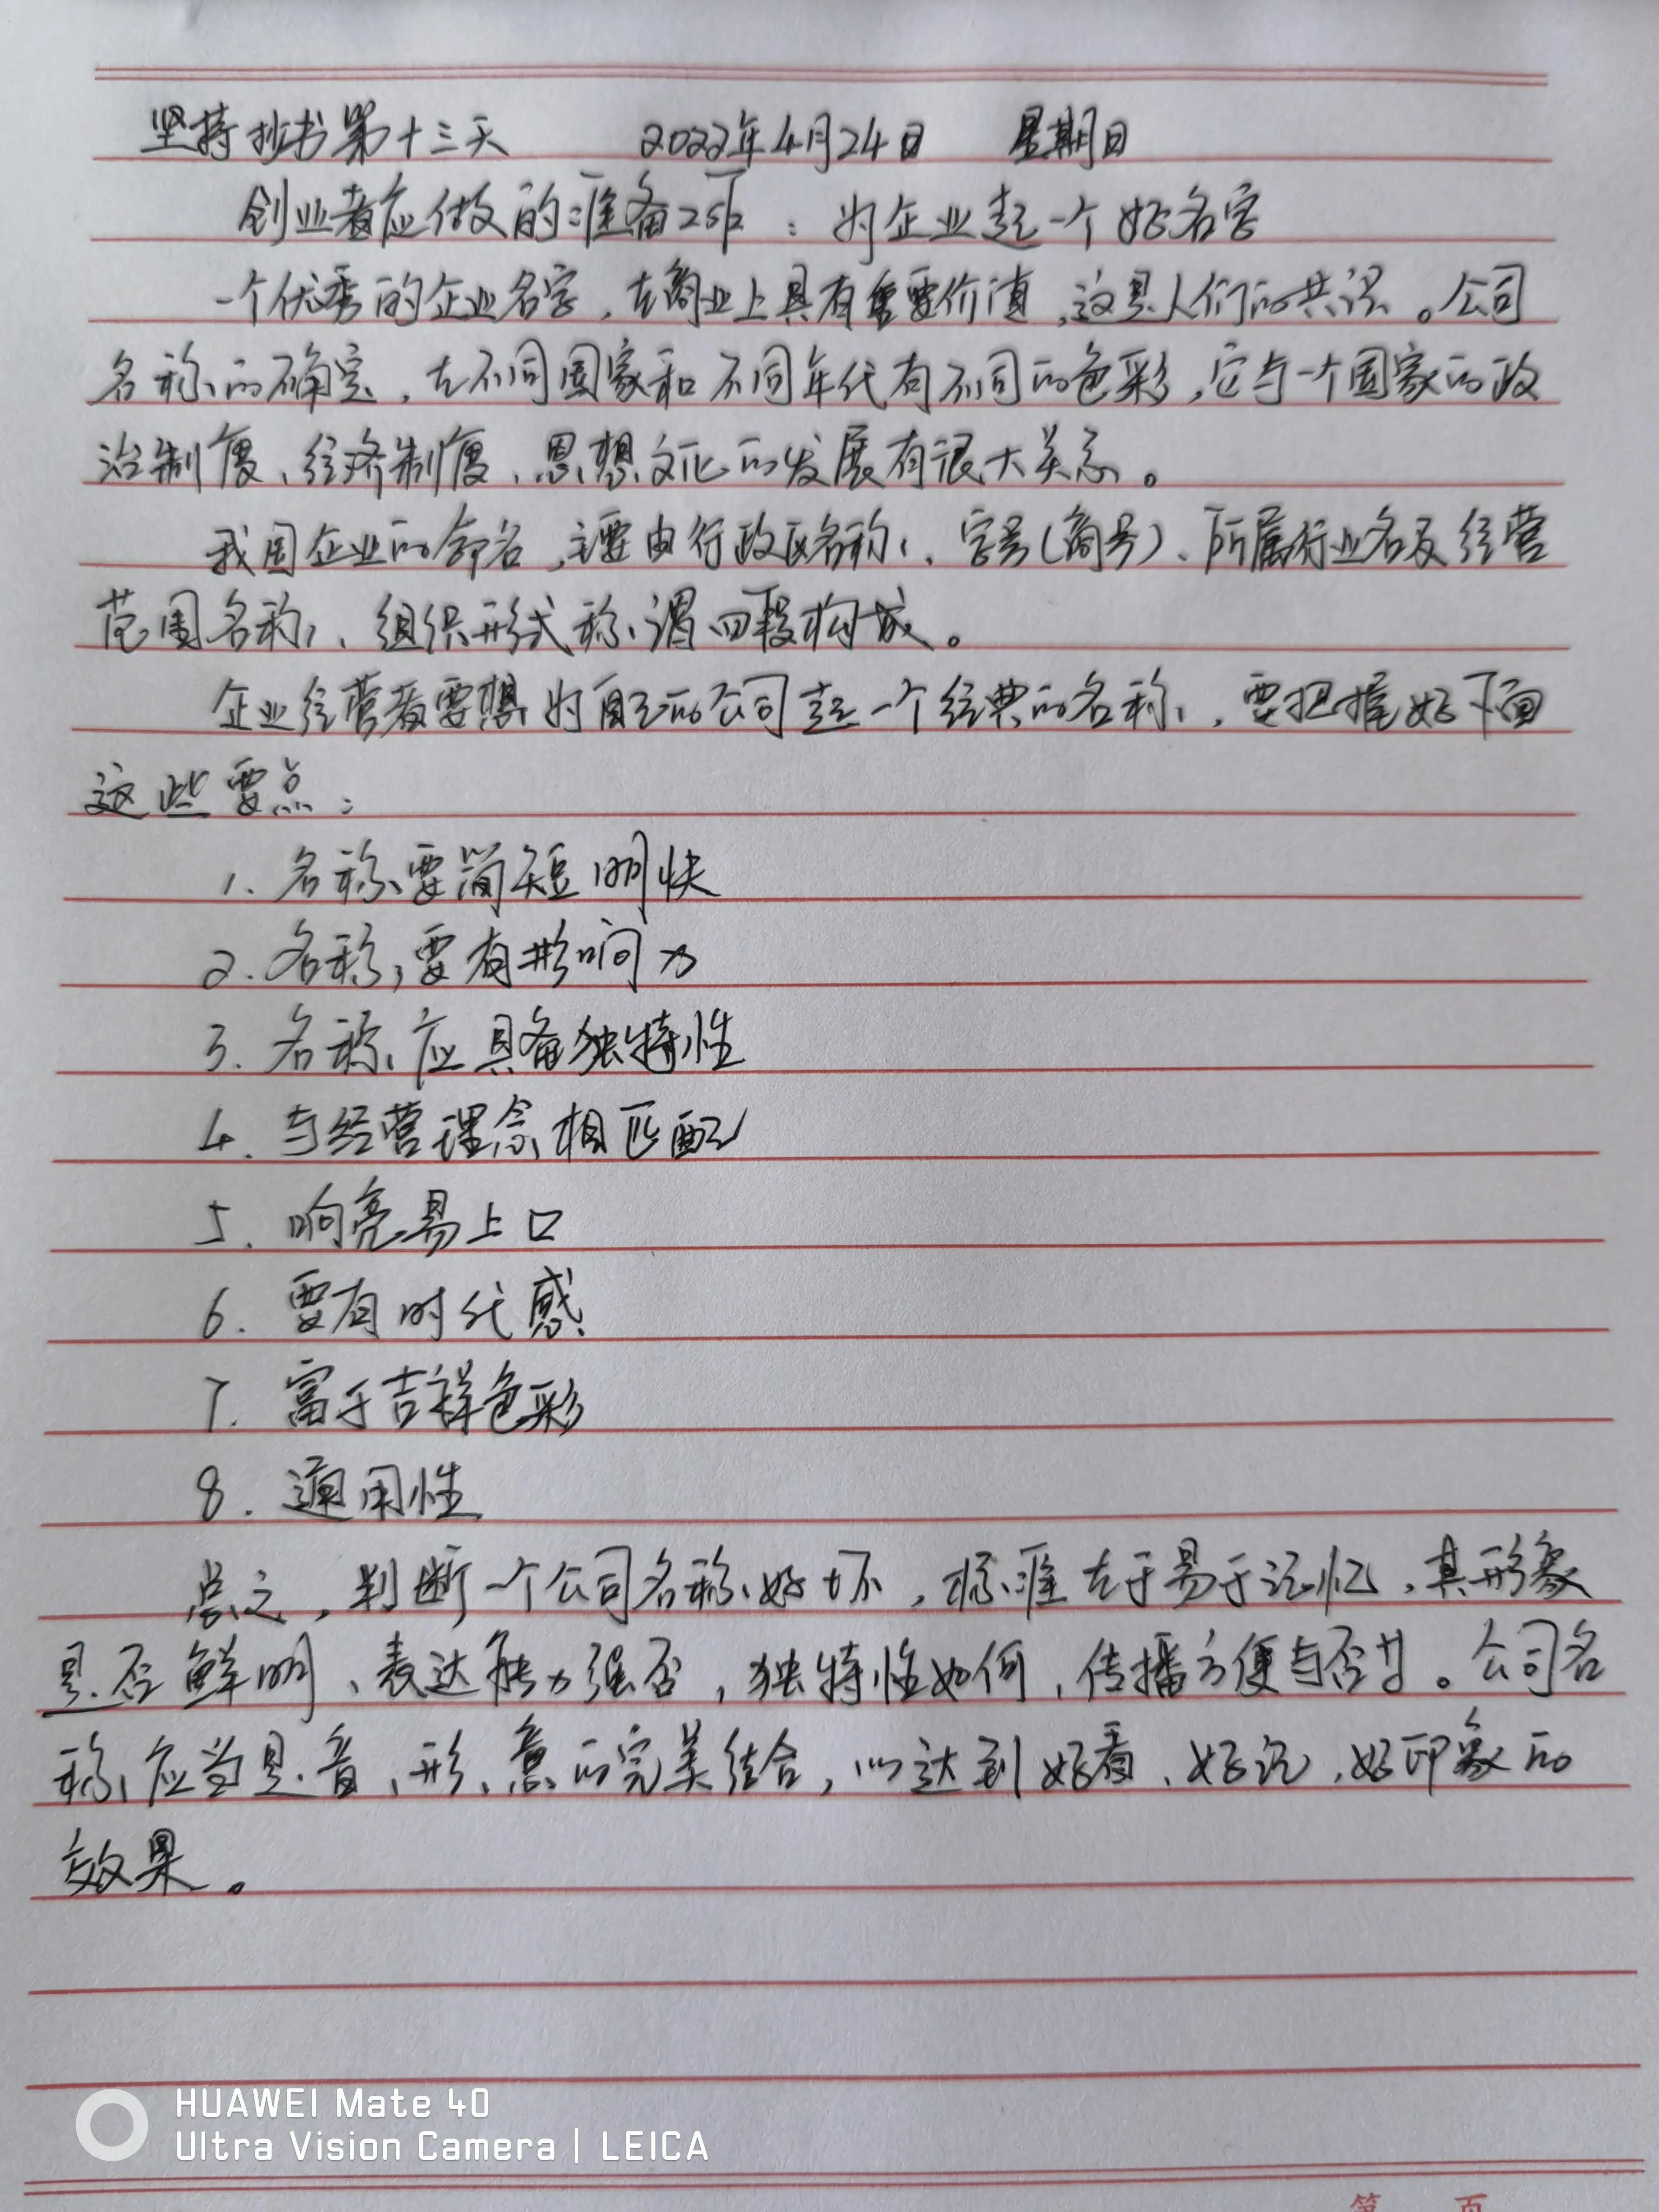 坚持抄书第十三天 2022年4月24日 星期日
创业者应做的准备工作：为企业起一个好名字
一个优秀的企业名字，在商业上具有重要价值，这是人们的共识。公司
名称的确定，在不同国家和不同年代有不同的色彩，它与一个国家的政
治制度、经济制度、思想文化的发展有很大关系。
我国企业的命名，主要由行政区名称、字号(商号)、所属行业名及经营
范围名称、组织形式称谓四段构成。
企业经营者要想为自己的公司起一个经典的名称，要把握好下面
这些要点：
1. 名称要简短明快
2. 名称要有影响力
3. 名称应具备独特性
4. 与经营理念相匹配
5. 响亮易上口
6. 要有时代感
7. 富于吉祥色彩
8. 通用性
总之，判断一个公司名称好坏，标准在于易于记忆，其形象
是否鲜明、表达能力强否，独特性如何，传播方便与否等。公司名
称应当是音、形、意的完美结合，以达到好看、好记，好印象的
效果。
HUAWEI Mate 40
Ultra Vision Camera | LEICA
第 页